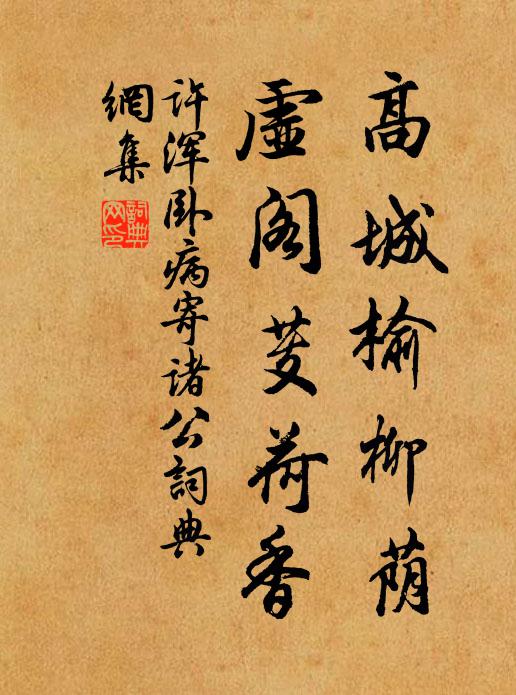 高城榆柳荫
虚阁芰荷香
许浑卧病寄诸公词典
網集
詞典
网印